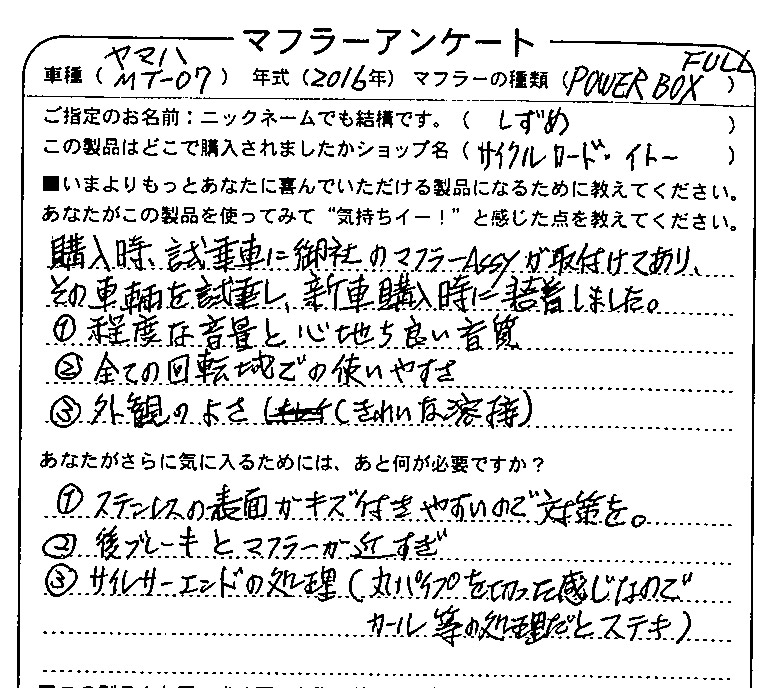 マフラーアンケート
車種（ヤマハ MT-07）年式（2016年）マフラーの種類（POWER BOX FULL）
ご指定のお名前：ニックネームでも結構です。（しずめ）
この製品はどこで購入されましたかショップ名（サイクルロード・イトー）
■いまよりもっとあなたに喜んでいただける製品になるために教えてください。
あなたがこの製品を使ってみて“気持ちイー！”と感じた点を教えてください。
購入時、試乗車に御社のマフラーASSYが取付けてあり、
その車輌を試乗し、新車購入時に装着しました。
①程度な音量と心地ち良い音質
②全ての回転域での使いやすさ
③外観のよさ（きれいな溶接）
あなたがさらに気に入るためには、あと何が必要ですか？
①ステンレスの表面がキズ付きやすいので対策を。
②後ブレーキとマフラーが近すぎ
③サイレサーエンドの処理（丸パイプを切った感じなので
カール等の処理だとステキ）